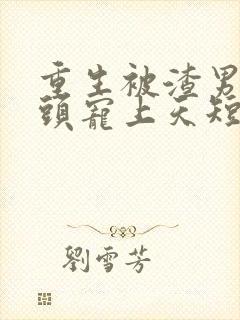 重生被渣男
頭寵上天短
劉雪芳